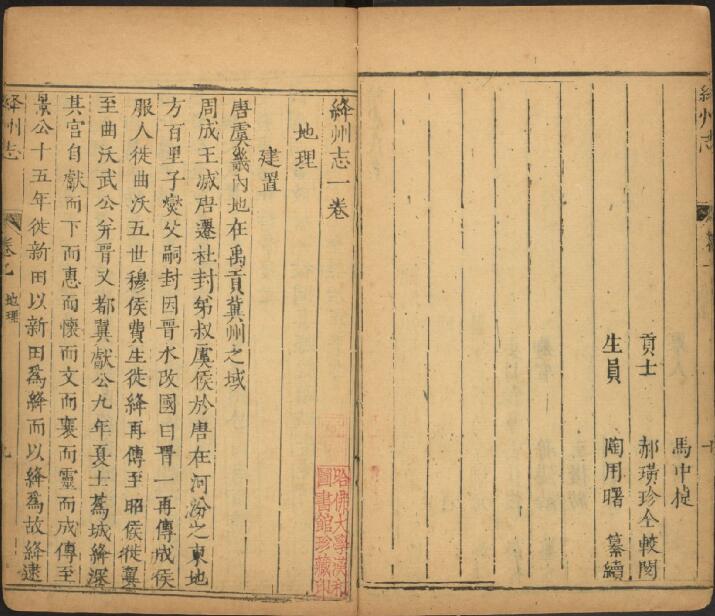 絳州志
十
馬中椳
貢士 郝璜珍仝較閱
生員 陶用曙 纂續
絳州志一卷
地理
建置
唐虞畿內地在禹貢冀州之域
周成王滅唐遷社封弟叔虞侯於唐在河汾之東地
方百里子燮父嗣封因晉水改國曰晉一再傳成侯
服人徙曲沃五世穆侯費生徙絳再傳至昭侯徙翼
至曲沃武公并晉又都翼獻公九年夏士蒍城絳深
其宮自獻而下而惠而懷而文而襄而靈而成傳至
景公十五年徙新田以新田爲絳而以絳爲故絳逮
絳州志
卷之 地理
九
哈佛大學漢和
圖書館珍藏印